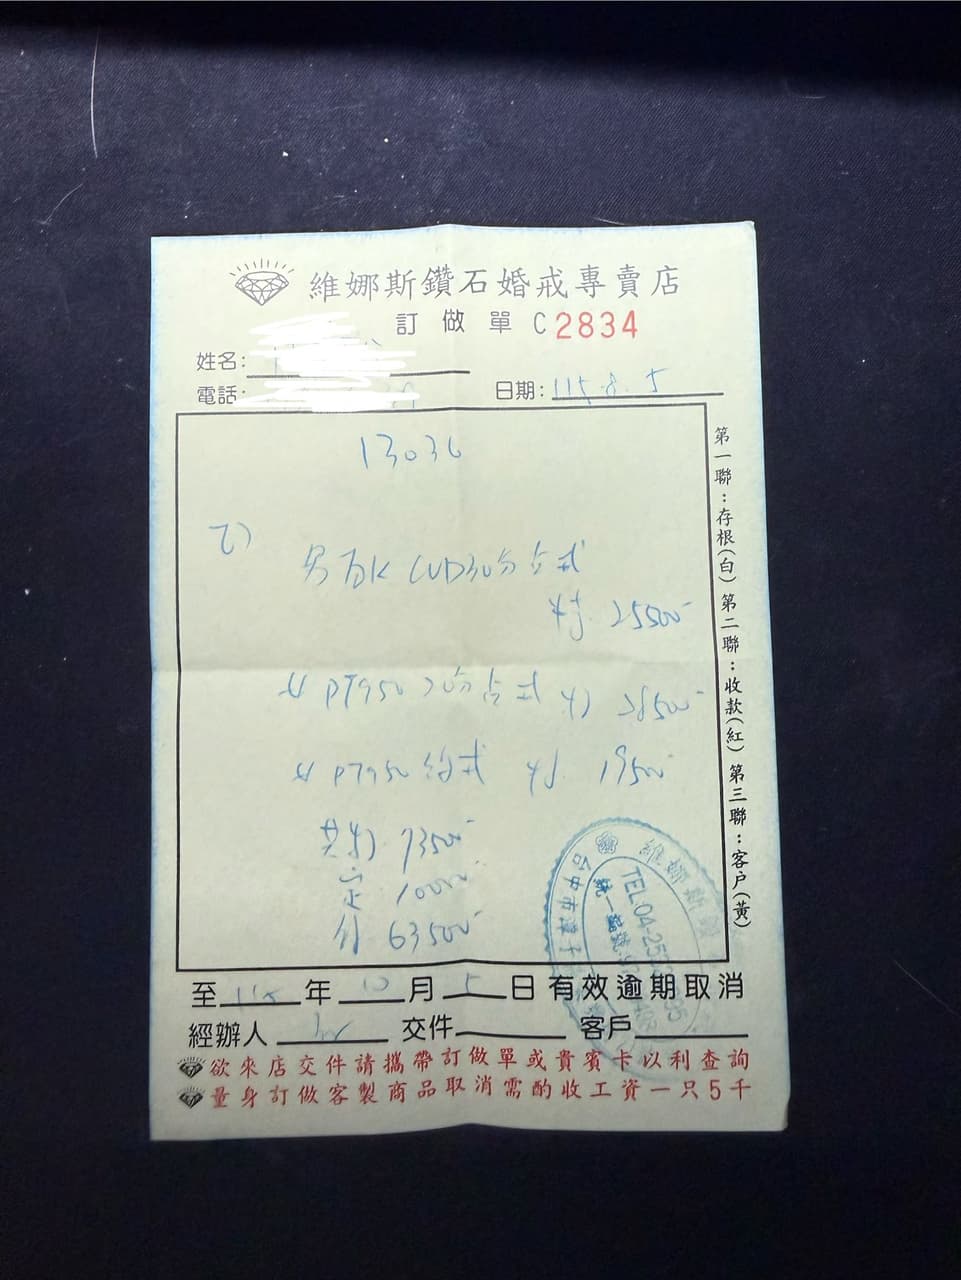 維娜斯鑽石婚戒專賣店
訂做單 C2834
姓名:
電話:
日期: 115.8.5
13036
男 CVD30分 式
特. 25500
女 PT950 20分 式 特 28500
女 PT950 式 特 19500
共特 73500
定 10000
付 63500
至 年 10 月 5 日有效逾期取消
經辦人 交件 客戶
欲來店交件請攜帶訂做單或貴賓卡以利查詢
量身訂做客製商品取消需酌收工資一只5千
第一聯:存根(白) 第二聯:收款(紅) 第三聯:客戶(黃)
維娜斯
TEL:04-25
統一編號:
台中市潭子